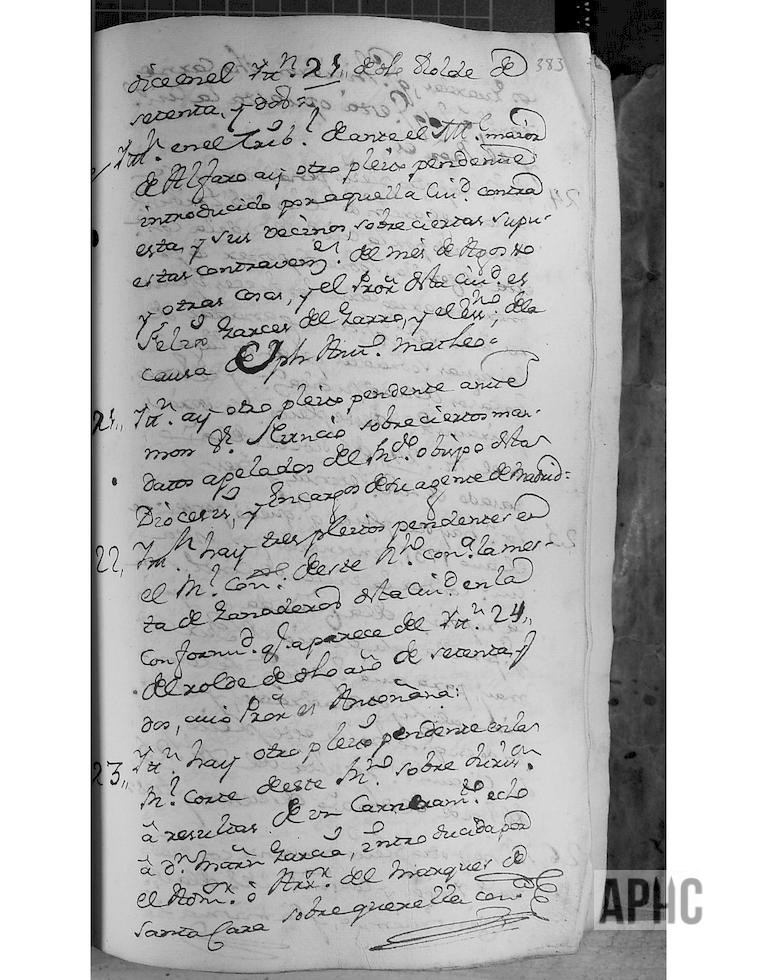 dice en el Ytt.ⁿ 21,, de dho Rolde de 383
setenta, y dos:
Ytt.ⁿ en el Trib.ˡ de ante el Alc.ᵉ maior
de Alfaro ay otro pleito pendente
introducido por aquella Ciu.ᵈ contra
esta, y sus vecinos, sobre ciertas supu-
estas contraven.ˢ del mes de Agosto
y otras cosas, y el Proʳ desta Ciu.ᵈ es
Felix Garces del Garro, y el ess.ⁿᵒ de la
causa Jph Ant.º Matheo=
21,, Ytt.ⁿ ay otro pleito pendente ante
mon.ʳ Nuncio sobre ciertos man-
datos apelados del Yll.º obispo desta
Diocesis, y Encargos de su agente de Madrid:
22, Ytt.ⁿ hay tres pleitos pendentes en
el R.ˡ Con.º deste R.ⁿᵒ con.ᵃ la mes-
ta de Ganaderos desta Ciu.ᵈ en la
conformi.ᵈ q.ᵉ aparece del Ytt.ⁿ 24,,
del rolde de dho año de setenta, y
dos, cuio Proʳ es Antoñana:
23,, Ytt.ⁿ hay otro pleito pendente en la
R.ˡ Corte deste R.ⁿᵒ sobre
â resultas de un Carneram.ᵗᵒ echo
â d.ⁿ Martin Garcia, introducida por
el ô Arr.ᵒʳ del Marques de
Santa Cara sobre querella con.ᵗʳᵃ
APHC